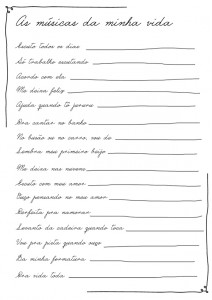 As músicas da minha vida
Escuto todos os dias
Só trabalho escutando
Acordo com ela
Me deixa feliz
Ajuda quando tô
Pra cantar no banho
No busão ou no carro, vou de
Lembra meu primeiro beijo
Me deixa nas nuvens
Escuto com meu amor
Ouço pensando no meu amor
Perfeita pra namorar
Levanto da cadeira quando toca
Vou pra pista quando ouço
Da minha formatura
Pra vida toda